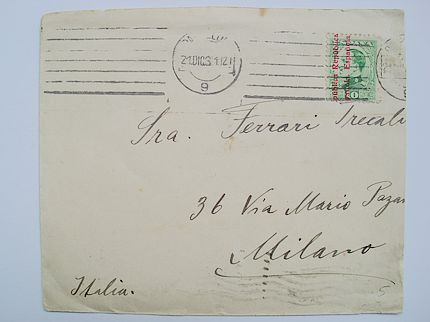 21.DIC.31.12T
9
República
Española
1
Sra. Ferrari Trecali
36 Via Mario Pazar
Milano
Italia.
5